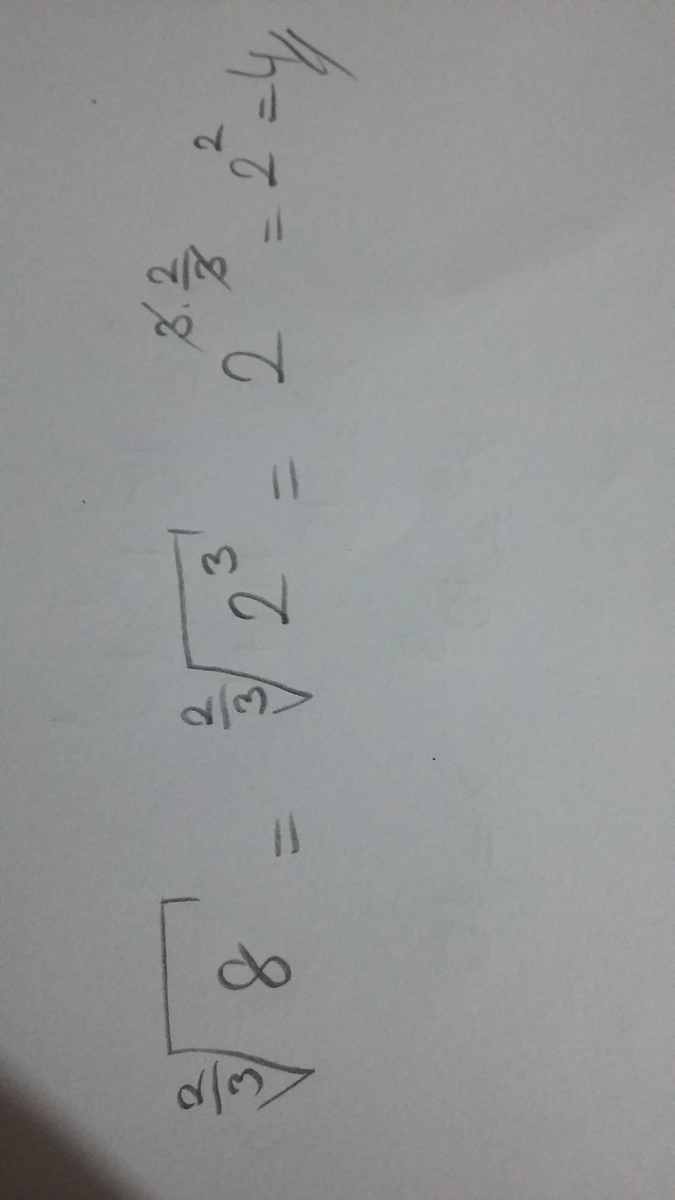 $\sqrt[\frac{2}{3}]{8} = \sqrt[\frac{2}{3}]{2^3} = 2^{3 \cdot \frac{2}{3}} = 2^2 = 4$